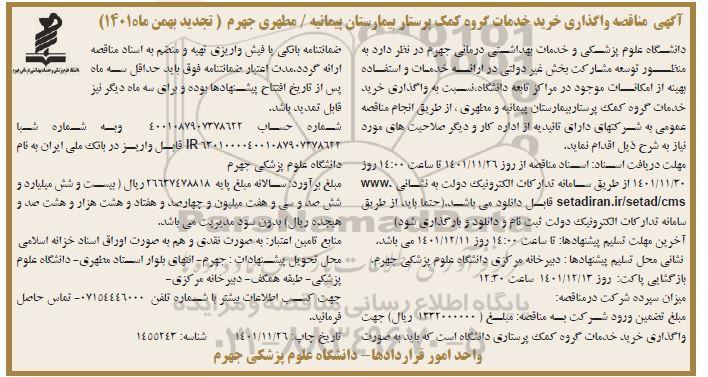 آگهی مناقصه واگذاری خرید خدمات گروه کمک پرستار بیمارستان پیمانیه / مطهری جهرم ( تجدید بهمن ماه۱۴۰۱)
دانشگاه علوم پزشکی و خدمات بهداشتی درمانی جهرم در نظر دارد به
منظور توسعه مشارکت بخش غیر دولتی در ارائه خدمات و استفاده
بهینه از امکانات موجود در مراکز تابعه دانشگاه،نسبت به واگذاری خرید
خدمات گروه کمک پرستاربیمارستان پیمانیه و مطهری ، از طریق انجام مناقصه
عمومی به شرکتهای دارای تائیدیه از اداره کار و دیگر صلاحیت های مورد
نیاز به شرح ذیل اقدام نماید.
مهلت دریافت اسناد: اسناد مناقصه از روز ۱۴۰۱/۱۱/۲۶ تا ساعت ۱۴:۰۰ روز
۱۴۰۱/۱۱/۳۰ از طریق سامانه تدارکات الکترونیک دولت به نشانی www.
setadiran.ir/setad/cms قابل دانلود می باشد.(حتما باید از طریق
سامانه تدارکات الکترونیک دولت ثبت نام و دانلود و بارگذاری شود)
آخرین مهلت تسلیم پیشنهادها: تا ساعت ۱۴:۰۰ روز ۱۴۰۱/۱۲/۱۱ می باشد.
نشانی محل تسلیم پیشنهادها : دبیرخانه مرکزی دانشگاه علوم پزشکی جهرم.
بازگشایی پاکت: روز ۱۴۰۱/۱۲/۱۳ ساعت ۱۲:۳۰
میزان سپرده شرکت درمناقصه:
مبلغ تضمین ورود شرکت به مناقصه: مبلغ ( ۱۳۳۲۰۰۰۰۰۰ ریال) جهت
واگذاری خرید خدمات گروه کمک پرستاری دانشگاه است که باید به صورت
ضمانتنامه بانکی یا فیش واریزی تهیه و منضم به اسناد مناقصه
ارائه گردد.مدت اعتبار ضمانتنامه فوق باید حداقل سه ماه
پس از تاریخ افتتاح پیشنهادها بوده و برای سه ماه دیگر نیز
قابل تمدید باشد.
شماره حساب ۴۰۰۱۰۸۷۹۰۷۳۷۸۶۲۲ وبه شماره شبا
IR ۶۳۰۱۰۰۰۰۴۰۰۱۰۸۷۹۰۷۳۷۸۶۲۲ قابل واریز در بانک ملی ایران به نام
دانشگاه علوم پزشکی جهرم
مبلغ برآورد: سالانه مبلغ پایه ۲۶۶۳۷۴۷۸۸۱۸ ریال ( بیست و شش میلیارد و
شش صد و سی و هفت میلیون و چهارصد و هفتاد و هشت هزار و هشت صد و
هیجده ریال) بدون سود مدیریت می باشد.
منابع تامین اعتبار: به صورت نقدی و هم به صورت اوراق اسناد خزانه اسلامی
محل تحویل پیشنهادات : جهرم- انتهای بلوار استاد مطهری- دانشگاه علوم
پزشکی- طبقه همکف- دبیرخانه مرکزی-
جهت کسب اطلاعات بیشتر با شماره تلفن ۰۷۱۵۴۴۴۶۰۰۰- تماس حاصل
فرمائید.
تاریخ چاپ: ۱۴۰۱/۱۱/۲۶ شناسه: ۱۴۵۵۲۴۳
واحد امور قراردادها – دانشگاه علوم پزشکی جهرم